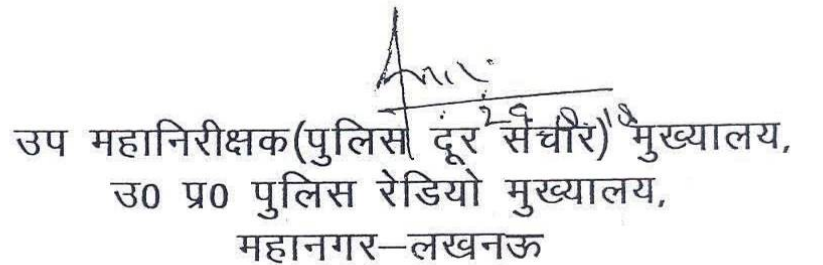 उप महानिरीक्षक(पुलिस दूर संचार) मुख्यालय,
उ0 प्र0 पुलिस रेडियो मुख्यालय,
महानगर–लखनऊ